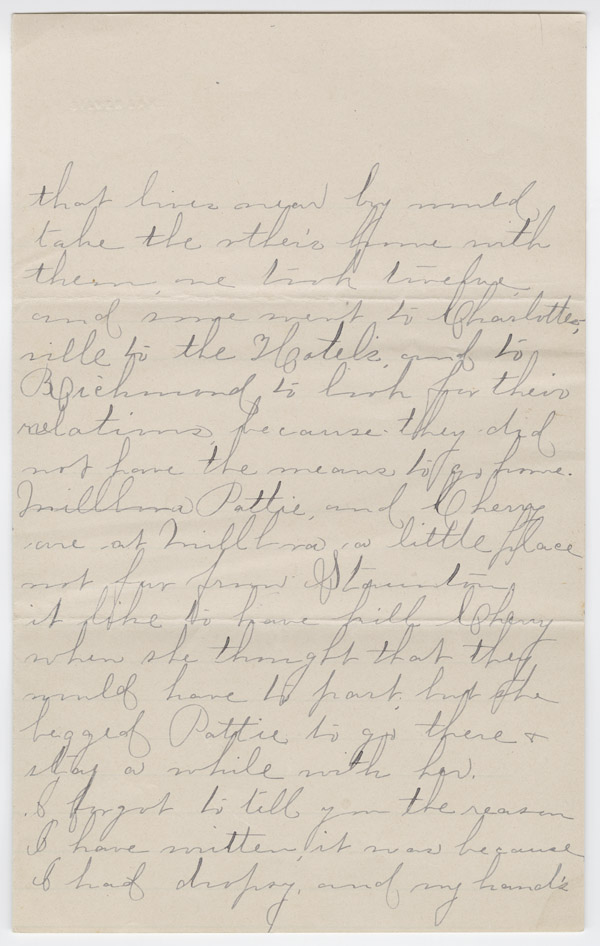 that lives near by would
take the other's home with
them, we took twelve,
and some went to Charlottes,
ville to the Hotel's, and to
Richmond, to look for their
relations, because they did
not have the means to go home.
Pattie, and Cherry
are at a little place
not far from Staunton,
it like to have kill Cherry
when she thought that they
would have to part, but she
begged Pattie to go there &
stay a while with her.
I forgot to tell you the reason
I have written, it was because
I had dropsy, and my hand's